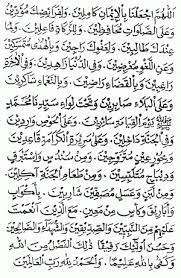 اَللّٰهُمَّ اجْعَلْنَا بِالْإِيْمَانِ كَامِلِيْنَ، وَلِلْفَرَائِضِ مُؤَدِّيْنَ
وَعَلَى الصَّلَوَاتِ مُحَافِظِيْنَ، وَلِلزَّكَاةِ فَاعِلِيْنَ، وَلِمَا
عِنْدَكَ طَالِبِيْنَ، وَلِعَفْوِكَ رَاجِيْنَ، وَبِالْهُدَى مُتَمَسِّكِيْنَ
وَعَنِ اللَّغْوِ مُعْرِضِيْنَ، وَفِي الدُّنْيَا زَاهِدِيْنَ، وَفِي الْآخِرَةِ
رَاغِبِيْنَ، وَبِالْقَضَاءِ رَاضِيْنَ، وَبِالنَّعْمَاءِ شَاكِرِيْنَ
وَعَلَى الْبَلَاءِ صَابِرِيْنَ، وَتَحْتَ لِوَاءِ سَيِّدِنَا مُحَمَّدٍ
يَوْمَ الْقِيَامَةِ سَائِرِيْنَ، وَعَلَى الْحَوْضِ وَارِدِيْنَ
وَفِي الْجَنَّةِ دَاخِلِيْنَ، وَعَلَى سَرِيْرَةِ الْكَرَامَةِ قَاعِدِيْنَ
وَبِحُوْرٍ عِيْنٍ مُتَزَوِّجِيْنَ، وَمِنْ سُنْدُسٍ وَإِسْتَبْرَقٍ
وَدِيْبَاجٍ مُتَلَبِّسِيْنَ، وَمِنْ طَعَامِ الْجَنَّةِ آكِلِيْنَ
وَمِنْ لَبَنٍ وَعَسَلٍ مُصَفَّيْنِ شَارِبِيْنَ، بِأَكْوَابٍ
وَأَبَارِيْقَ وَكَأْسٍ مِنْ مَعِيْنٍ، مَعَ الَّذِيْنَ أَنْعَمْتَ
عَلَيْهِمْ مِنَ النَّبِيِّيْنَ وَالصِّدِّيْقِيْنَ وَالشُّهَدَاءِ وَالصَّالِحِيْنَ
وَحَسُنَ أُولٰئِكَ رَفِيْقًا، ذٰلِكَ الْفَضْلُ مِنَ اللهِ
وَكَفَى بِاللهِ عَلِيْمًا، وَالْحَمْدُ لِلّٰهِ رَبِّ الْعَالَمِيْنَ